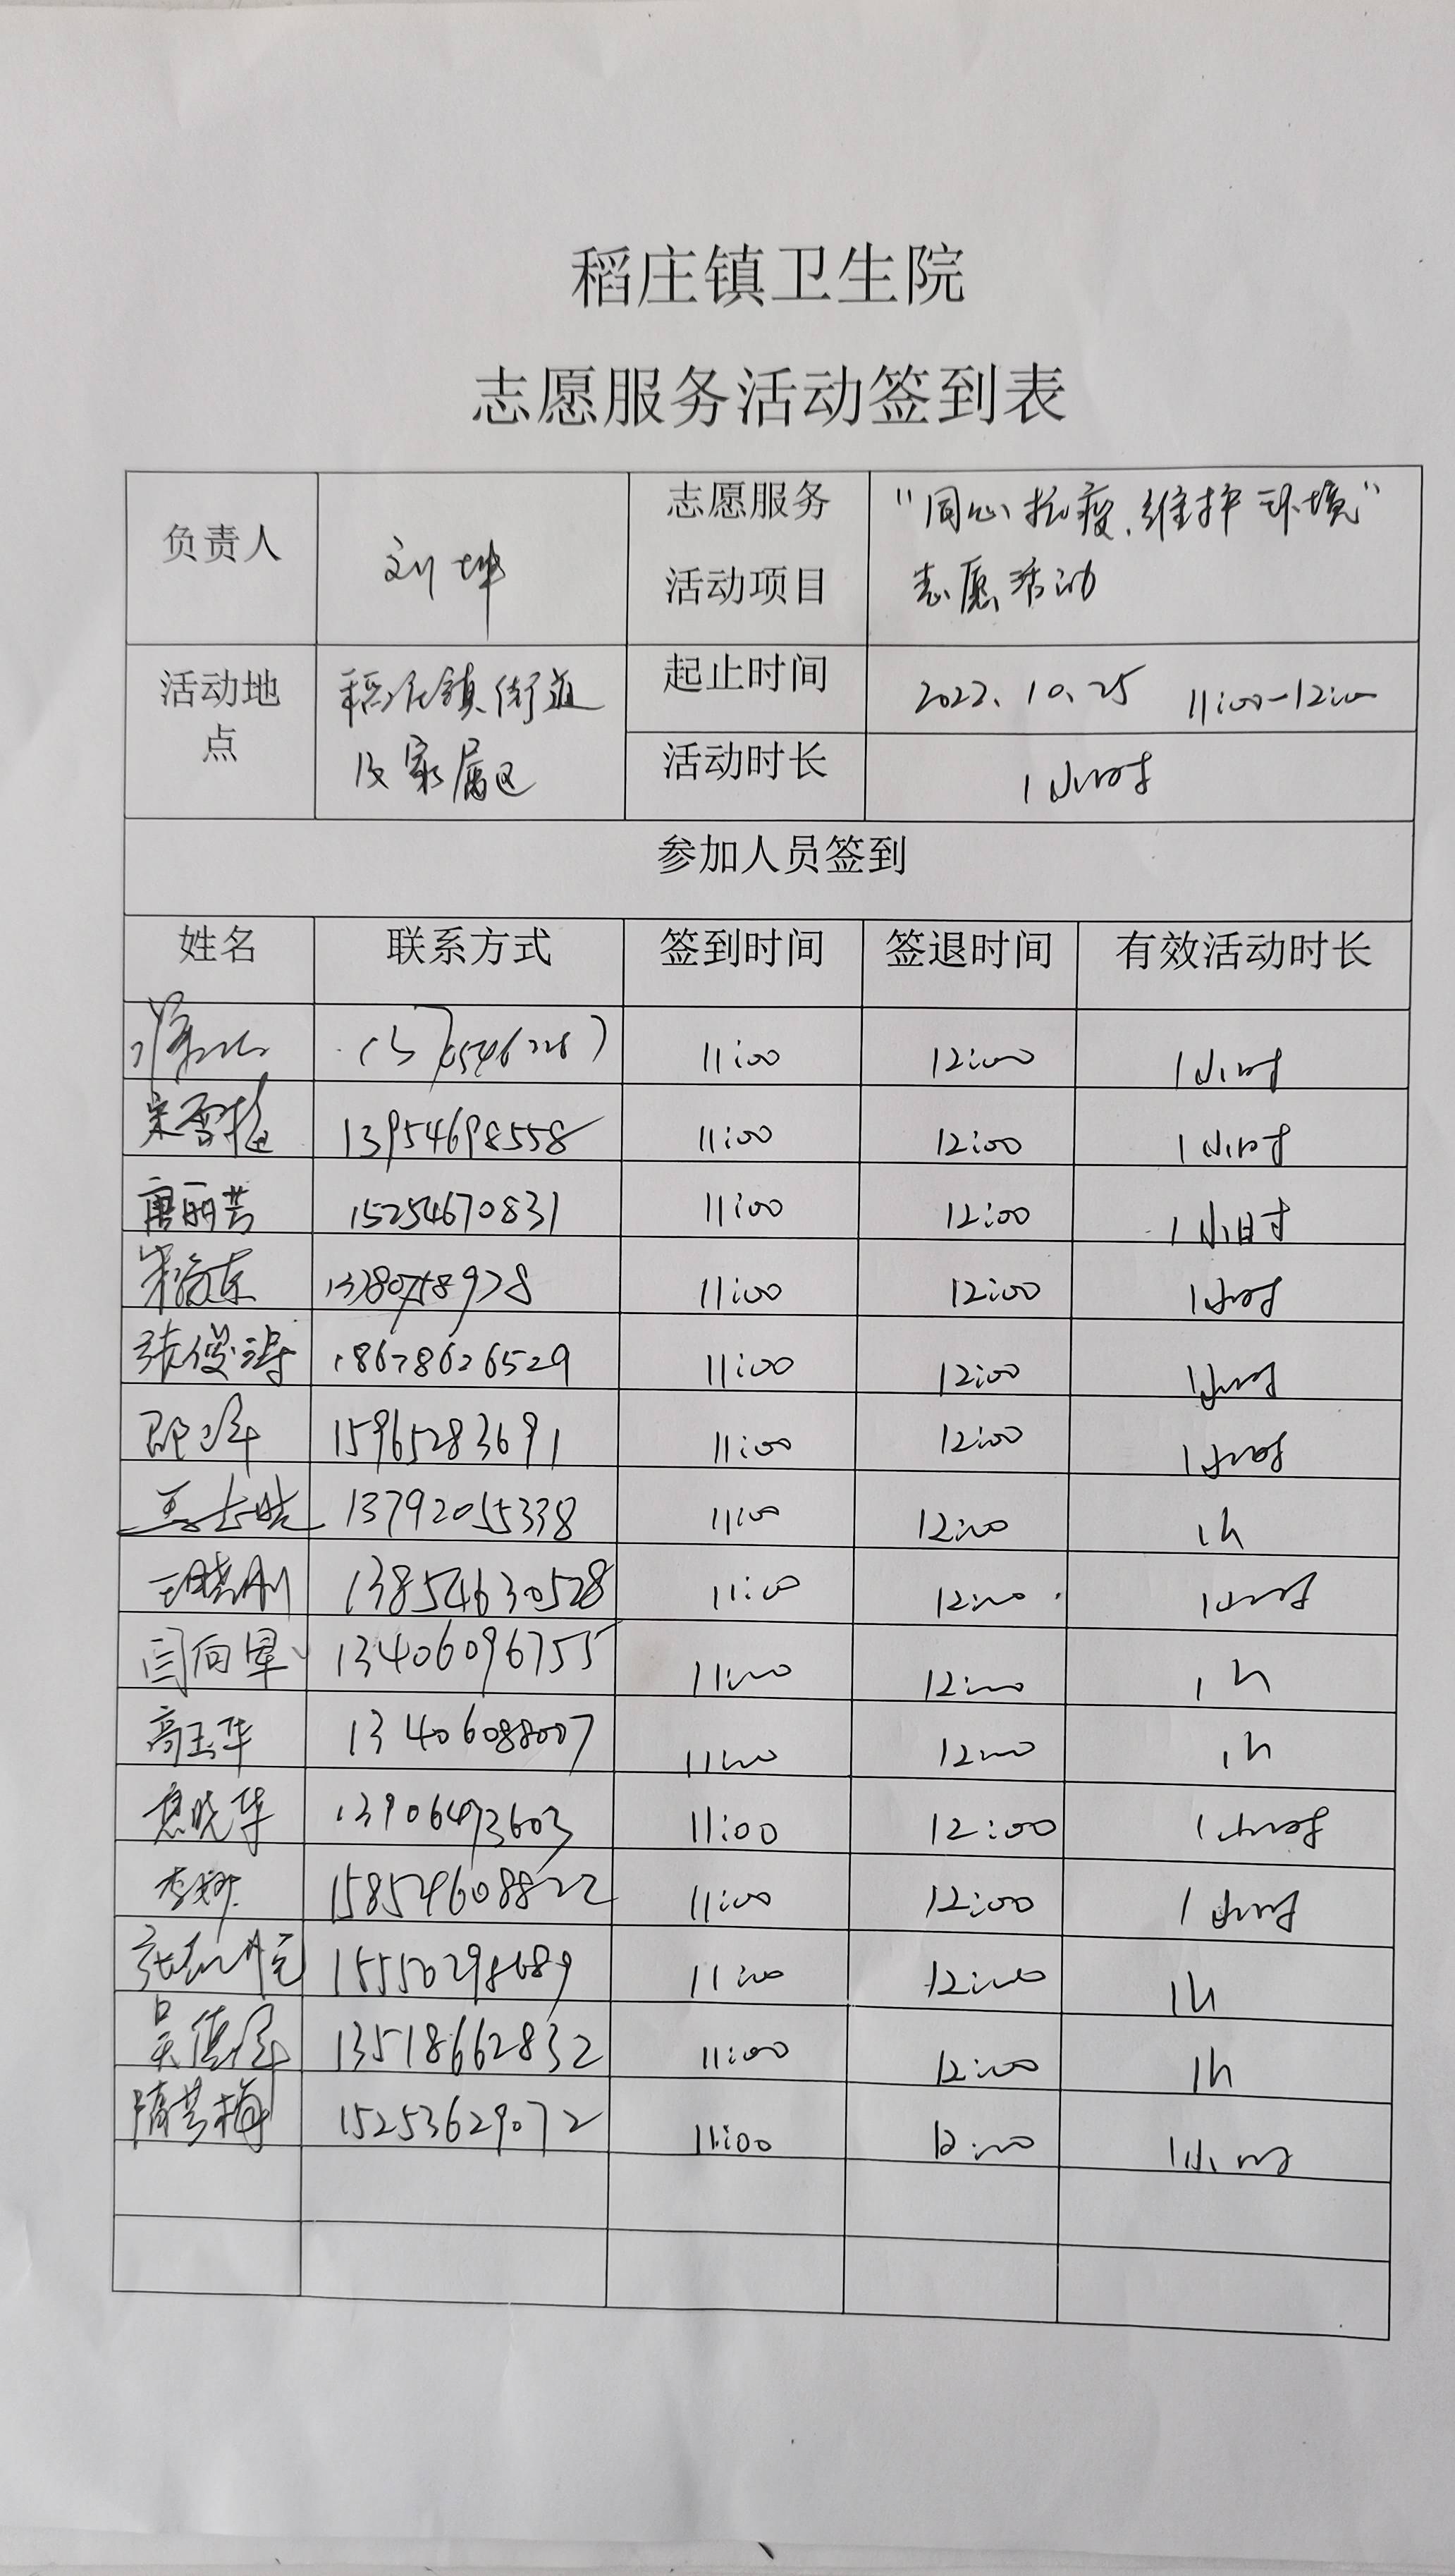 稻庄镇卫生院
志愿服务活动签到表
负责人 刘坤 志愿服务活动项目 "同心抗疫、维护环境"
志愿活动
活动地点 稻庄镇街道
及家属区
起止时间 2022.10.25 11:00-12:00
活动时长 1小时
参加人员签到
姓名 联系方式 签到时间 签退时间 有效活动时长
11:00 12:00 1小时
宋雪梅 13954698558 11:00 12:00 1小时
唐丽芸 15254670831 11:00 12:00 1小时
11:00 12:00 1小时
张俊涛 18678626529 11:00 12:00 1小时
15965283691 11:00 12:00 1小时
13792055338 11:00 12:00 1h
王晓刚 13854630528 11:00 12:00 1小时
闫向军 13406096755 11:00 12:00 1h
高玉华 13406088007 11:00 12:00 1h
晓华 13906473603 11:00 12:00 1小时
李娜 15854608822 11:00 12:00 1小时
15550298689 11:00 12:00 1h
13518662832 11:00 12:00 1h
隋芸梅 15253629072 11:00 12:00 1小时